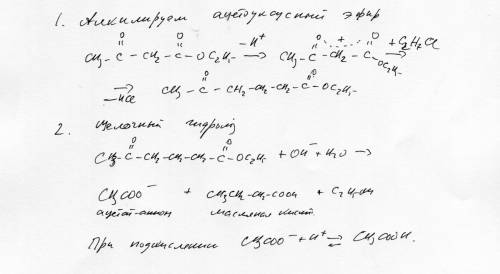 1. Алкилируем ацетоуксусный эфир
CH₃-C(=O)-CH₂-C(=O)-OC₂H₅ -H⁺→ CH₃-C(=O)-CH₂-C(=O)-OC₂H₅ +C₂H₅Cl →
→ -HCl CH₃-C(=O)-CH₂-CH₂-CH₂-C(=O)-OC₂H₅
2. Щелочный гидролиз
CH₃-C(=O)-CH₂-CH₂-CH₂-C(=O)-OC₂H₅ + OH⁻ + H₂O →
CH₃COO⁻ + CH₃CH₂-CH₂-COOH + C₂H₅OH
ацетат-анион масляная кисл.
При подкислении CH₃COO⁻ + H⁺ ⇄ CH₃COOH.